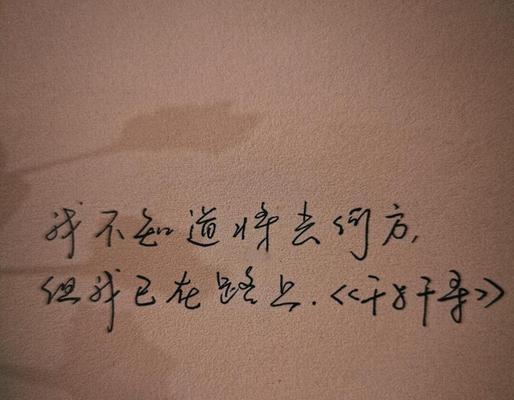 我不知道将去何方,
但我已在路上.《千与千寻》